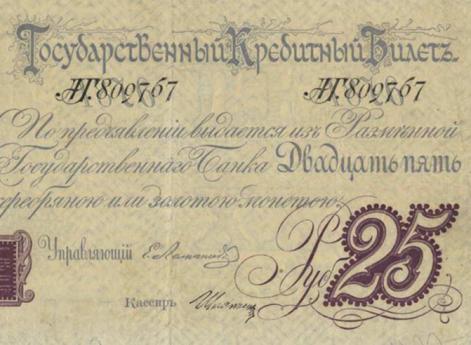 Государственный Кредитный Билетъ.
АГ.809767 АГ.809767
По предъявленіи выдается изъ Размѣнной
Государственнаго Банка Двадцать пять
серебряною или золотою монетою.
Управляющій Е. Ламанскій
Рубл 25
Кассиръ